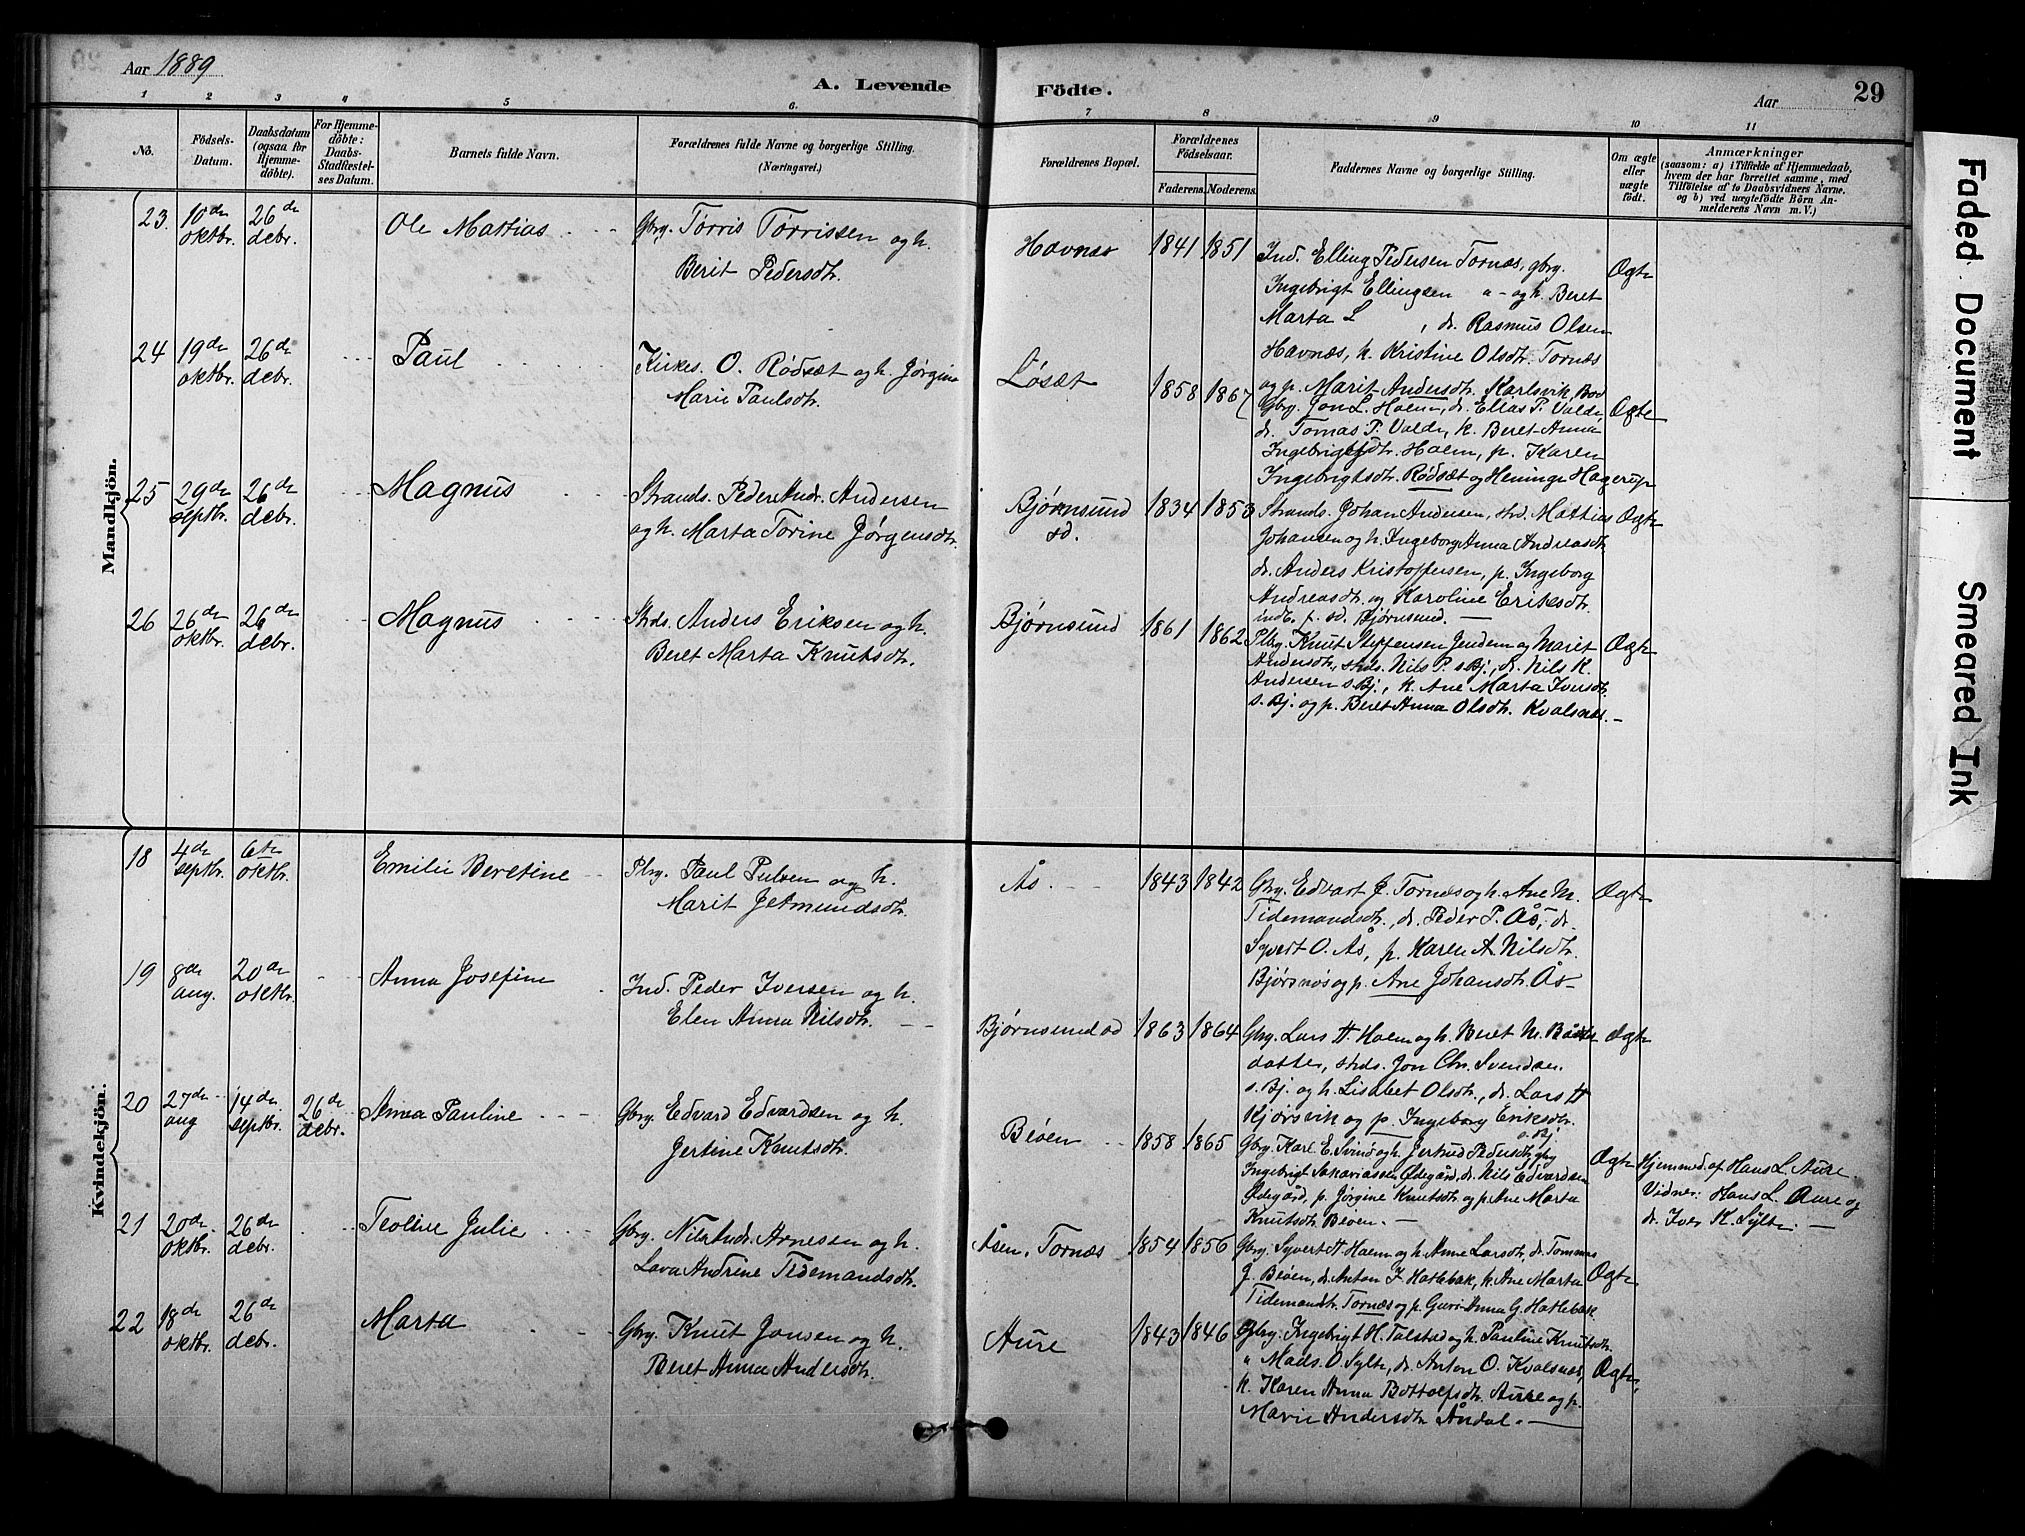 Aar 1889
A. Levende
Födte.
Aar
29
1 2 3 4 5 6. 7 8 9 10 11
No.
Födsels-Datum.
Daabsdatum (ogsaa for Hjemme-döbte).
For Hjemme-döbte: Daabs-Stadfæstel-ses Datum.
Barnets fulde Navn.
Forældrenes fulde Navne og borgerlige Stilling.
(Næringsvei.)
Forældrenes Bopæl.
Forældrenes Födselsaar.
Faderens. Moderens.
Faddernes Navne og borgerlige Stilling.
Om ægte eller uægte födt.
Anmærkninger
(saasom: a) i Tilfælde af Hjemmedaab,
hvem der har forrettet samme, med
Tilföielse af to Daabsvidners Navne,
og b) ved uægtefödte Börn An-
melderens Navn m. V.)
Mandkjön.
23. 10de oktbr. 26de debr. Ole Mattias
Gbrg. Tørris Tørrissen og h.
Berit Pedersdtr.
Havnæs 1841 1851
Ind. Elling Pedersen Tornæs, gbrg.
Ingebrigt Ellingsen " - og h. Beret
Marta L , dr. Rasmus Olsen
Havnæs, k. Kristine Olsdtr. Tornæs
og p. Marit Andersdtr. Karlsvik, Bod
Ægte
24 19de oktbr. 26de debr. Paul
Kirkes. O. Rødsæt og h. Jørgine
Marie Paulsdtr.
Løsæt 1858 1867
Gbrg. Jon L. Holm, dr. Elias P. Valde
dr. Tomas P. Valde, k. Beret Anna
Ingebrigtsdtr. Holm, p. Karen
Ingebrigtsdtr. Rødsæt og Heninge Hagerup
Ægte
25 29de septbr. 26de debr. Magnus
Strands. Peder Andr. Andersen
og h. Marta Torine Jørgensdtr.
Bjørnsund sd. 1834 1853
Strands. Johan Andersen, strd. Mattias
Johansen og h. Ingeborg Anna Andreasdtr
dr. Anders Kristoffersen, p. Ingeborg
Andreasdtr. og Karoline Eriksdtr.
indb. p. sd. Bjørnsund. —
Ægte
26 26de oktbr. 26de debr. Magnus
Strds. Anders Eriksen og h.
Beret Marta Knutsdtr.
Bjørnsund 1861 1862
Plbg. Knut Steffensen Jendem og Marit
Andersdtr., strds. Nils P. s. Bj., dr. Nils K.
Andersen s. Bj., k. Ane Marta Iversdtr.
s. Bj. og p. Beret Anna Olsdtr. Kvalsnæs. —
Ægte
Kvindekjön.
18 4de septbr. 6te oktbr. Emilie Beretine
Plbg. Paul Pulsen og h.
Marit Jetmundsdtr.
Ås 1843 1842
Gbrg. Edvart J. Tornæs og h. Ane M.
Tidemandsdtr., dr. Peder P. Ås, dr.
Syvert O. Ås, p. Karen A. Nilsdtr.
Bjørsnøs og p. Ane Johansdtr. Ås —
Ægte
19 8de aug. 20de oktbr. Anna Josefine
Ind. Peder Iversen og h.
Elen Anna Nilsdtr.
Bjørnsund sd 1863 1864
Gbrg. Lars H. Holm og h. Beret M.
datter, strds. Jon Chr. Svendsen
s. Bj. og h. Lisabet Olsdtr., dr. Lars H
Kjørsvik og p. Ingeborg Eriksdtr.
s. Bj
Ægte
20 27de aug 14de septbr. 26de debr. Anna Pauline
Gbrg. Edvard Edvardsen og h.
Jertine Knutsdtr.
Beøen 1858 1865
Gbrg. Karl E. Svinø og h. Jertrud Pedersdtr, gbrg
Ingebrigt Sakariassen Ødegård, dr. Nils Edvardsen
Ødegård, p. Jørgine Knutsdtr og p. Ane Marta
Knutsdtr. Beøen. —
Ægte
Hjemmed. af Hans L. Aure
Vidner: Hans L. Aure og
dr. Iver K. Sylte. —
21 20de oktbr. 26de debr. Teoline Julie
Gbrg. Nils Andr. Arnessen og h.
Lava Andrine Tidemandsdtr.
Åsen, Tornæs 1854 1856
Gbrg. Syvert H. Holm og h. Anne Larsdtr, dr. Tommas
J. Beøen, dr. Anton J. Hatlebak, k. Ane Marta
Tidemandsdtr. Tornæs og p. Guri Anna G. Hatlebak
Ægte
22 18de oktbr. 26de debr. Marta
Gbrg. Knut Jonsen og h.
Beret Anna Andersdtr.
Aure 1843 1846
Gbrg. Ingebrigt H. Talstad og h. Pauline Knutsdtr
" Mads O. Sylte, dr. Anton O. Kvalsnæs,
k. Karen Anna Bottolfsdtr. Aure og p.
Marie Andersdtr Åndal. —
Ægte
Faded Document
Smeared Ink